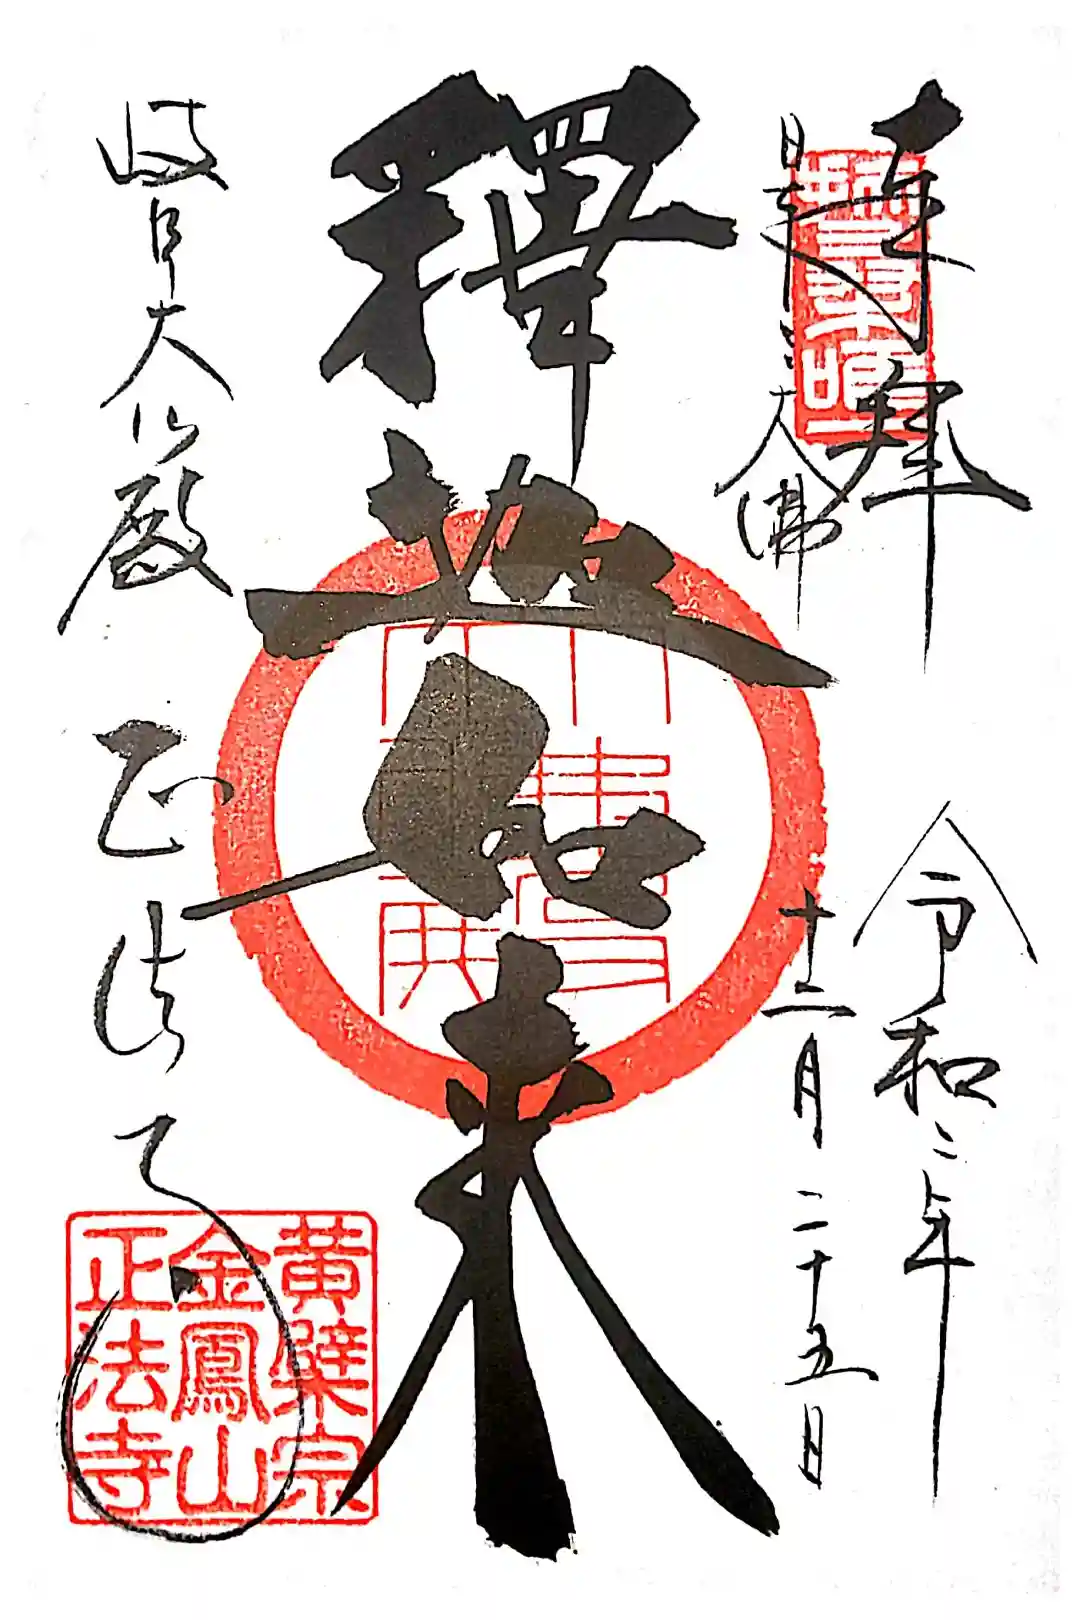 奉拝
日本三大佛
令和二年
十二月二十五日
釋迦如来
岐阜大仏殿
正法寺
黄檗宗
金鳳山
正法寺